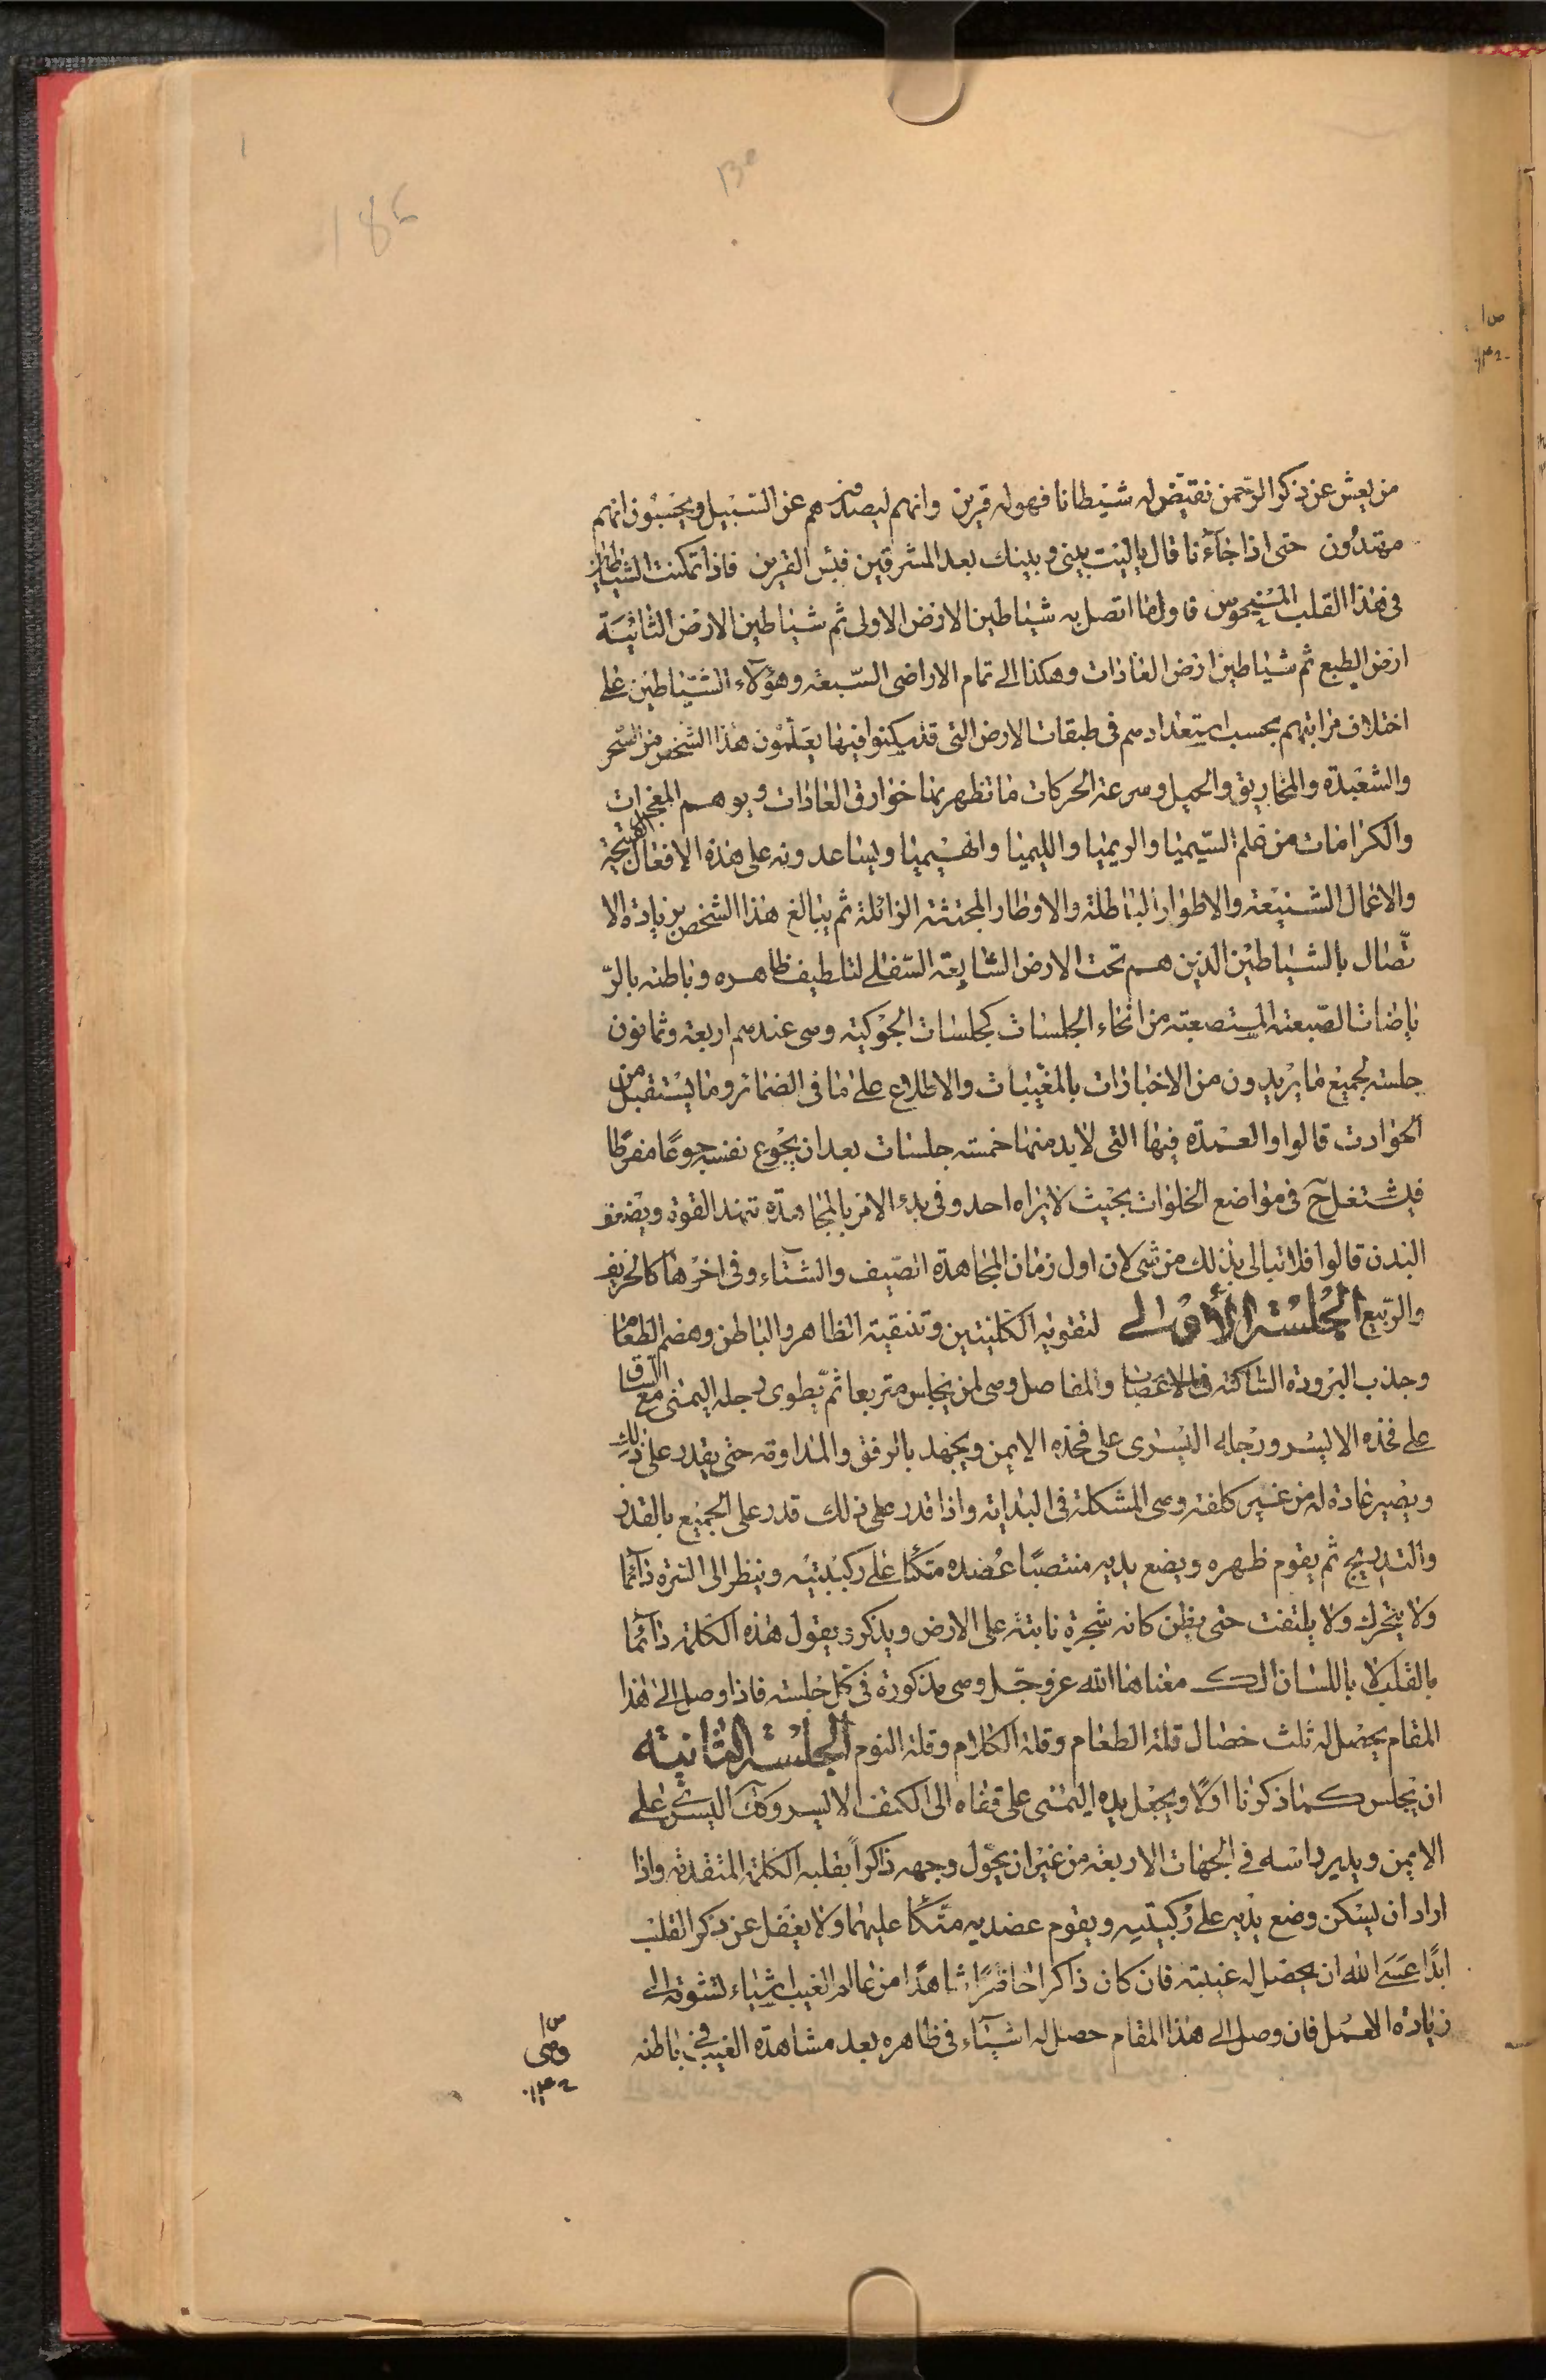 186
130
من يعش عن ذكر الرحمن نقيض له شيطانا فهو له قرين وانهم ليصدونهم عن السبيل ويحسبون انهم
مهتدون حتى اذا جاءنا قال يا ليت بيني وبينك بعد المشرقين فبئس القرين فاذا تمكنت الشياطين
في هذا القلب فاول ما اتصل به شياطين الارض الاولى ثم شياطين الارض الثانية
ارض الطبع ثم شياطين ارض العادات وهكذا الى تمام الاراضي السبعة وهؤلاء الشياطين على
اختلاف مراتبهم بحسب استعدادهم في طبقات الارض التي قد سكنوا فيها يعلمون هذا الشخص من السحر
والشعبدة والمخاريق والحيل وسرعة الحركات ما تظهر بها خوارق العادات ويوهم المعجزات
والكرامات من علم السيميا والريميا والليميا والهيميا ويساعدونه على هذه الافعال القبيحة
والاعمال الشنيعة والاطوار الباطلة والاوطار المجتثة الزائلة ثم يبالغ هذا الشخص بزيادة الا
تصال بالشياطين الذين هم تحت الارض السابعة السفلى لتلطيف ظاهره وباطنه بالر
ياضات الصعبة المستصعبة من انحاء الجلسات كجلسات الجوكية وهي عندهم اربعة وثمانون
جلسة لجميع ما يريدون من الاخبارات بالمغيبات والاطلاع على ما في الضمائر وما يستقبل من
الحوادث قالوا والعمدة فيها التي لا بد منها خمسة جلسات بعد ان يجوع نفسه جوعا مفرطا
فيشتغل ح في مواضع الخلوات بحيث لا يراه احد وفي بدء الامر بالمجاهدة تنهد القوة ويضعف
البدن قالوا فلا تبالي بذلك من شيء لان اول زمان المجاهدة الصيف والشتاء وفي اخرها كالخريف
والربيع الجلسة الأولى لتقوية الكليتين وتنقية الظاهر والباطن وهضم الطعام
وجذب البرودة الساكنة في الاعصاب والمفاصل وهي لمن يجلس متربعا ثم يطوى رجله اليمنى مع الساق
على فخذه الايسر ورجله اليسرى على فخذه الايمن ويجهد بالرفق والمداومة حتى يقدر على ذلك
ويصير عادة له من غير كلفة وهي المشكلة في البداية واذا قدر على ذلك قدر على الجميع بالقدر
والتدريج ثم يقوم ظهره ويضع يديه منتصبا عضده متكئا على ركبتيه وينظر الى السرة دائما
ولا يتحرك ولا يلتفت حتى يظن كانه شجرة نابتة على الارض ويذكر ويقول هذه الكلمة دائما
بالقلب لا باللسان الك معناها الله عز وجل وهي مذكورة في كل جلسة فاذا وصل الى هذا
المقام يحصل له ثلث خصال قلة الطعام وقلة الكلام وقلة النوم الجلسة الثانية
ان يجلس كما ذكرنا اولا ويجعل يده اليمنى على قفاه الى الكتف الايسر وكف اليسرى على
الايمن ويدير راسه في الجهات الاربعة من غير ان يحول وجهه ذاكرا بقلبه الكلمة المتقدمة واذا
اراد ان ليسكن وضع يديه على ركبتيه ويقوم عضديه متكئا عليهما ولا يغفل عن ذكر القلب
ابدا عسى الله ان يحصل له غيبته فان كان ذاكرا حاضرا شاهدا من عالم الغيب اشياء لتشوقه الى
زيادة العمل فان وصل الى هذا المقام حصل له اشياء في ظاهره بعد مشاهدة الغيب في باطنه